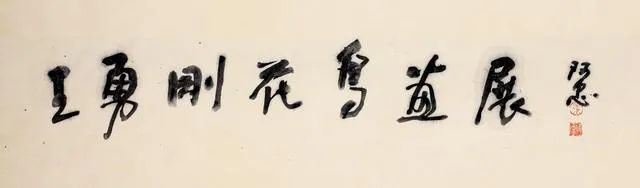 王勇刚花鸟画展